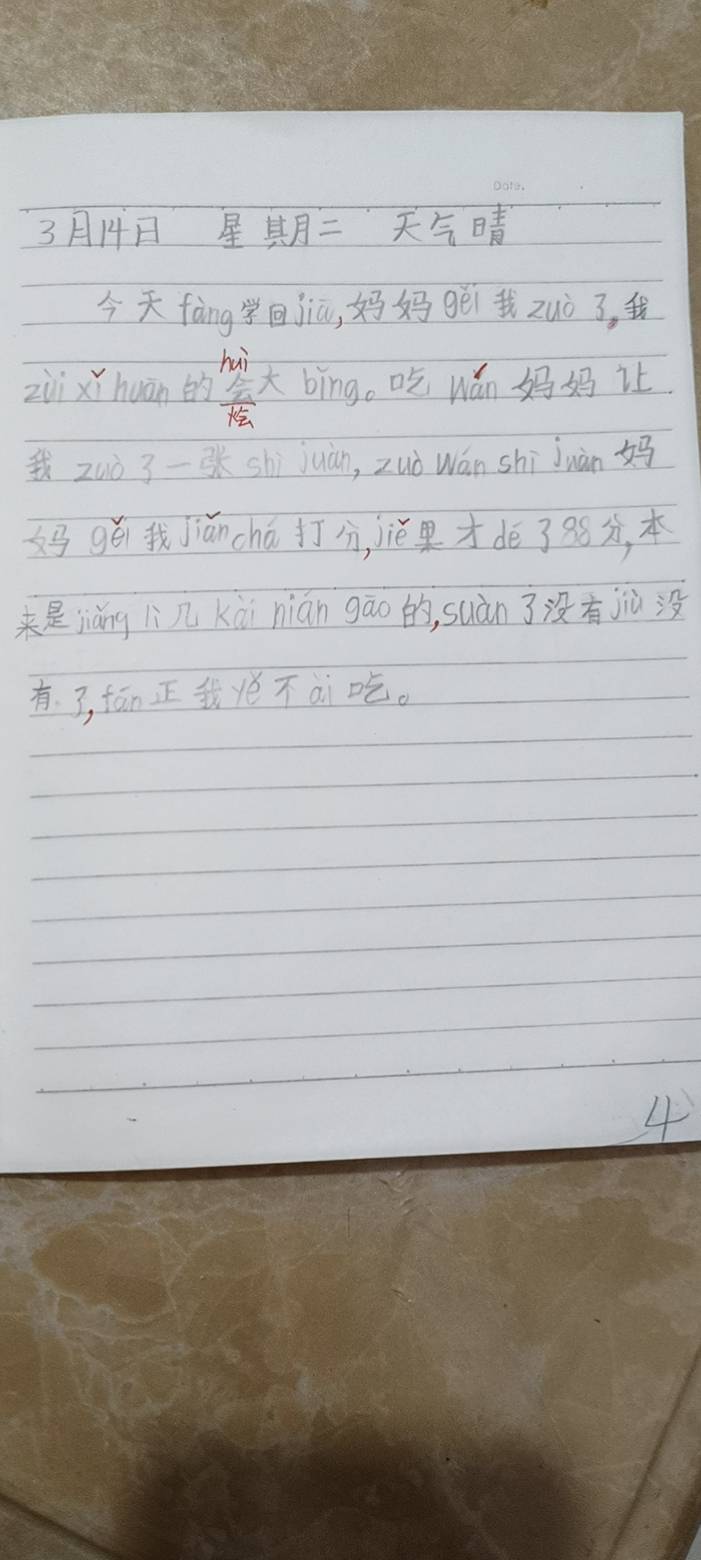 Date.
3月14日 星期二 天气晴
今天fàng学回jiā,妈妈gěi我zuò了,我
huì
zùi xǐ huān的会大bǐng。吃wán妈妈让
烩
我zuò了一张shì juàn,zuò wán shì juàn妈
妈gěi我jiǎn chá打分,jiě果才dé了98分,本
来是jiǎng 几kài nián gāo的,suàn了没有jiù没
有了,fǎn正我yě不ài吃。
4